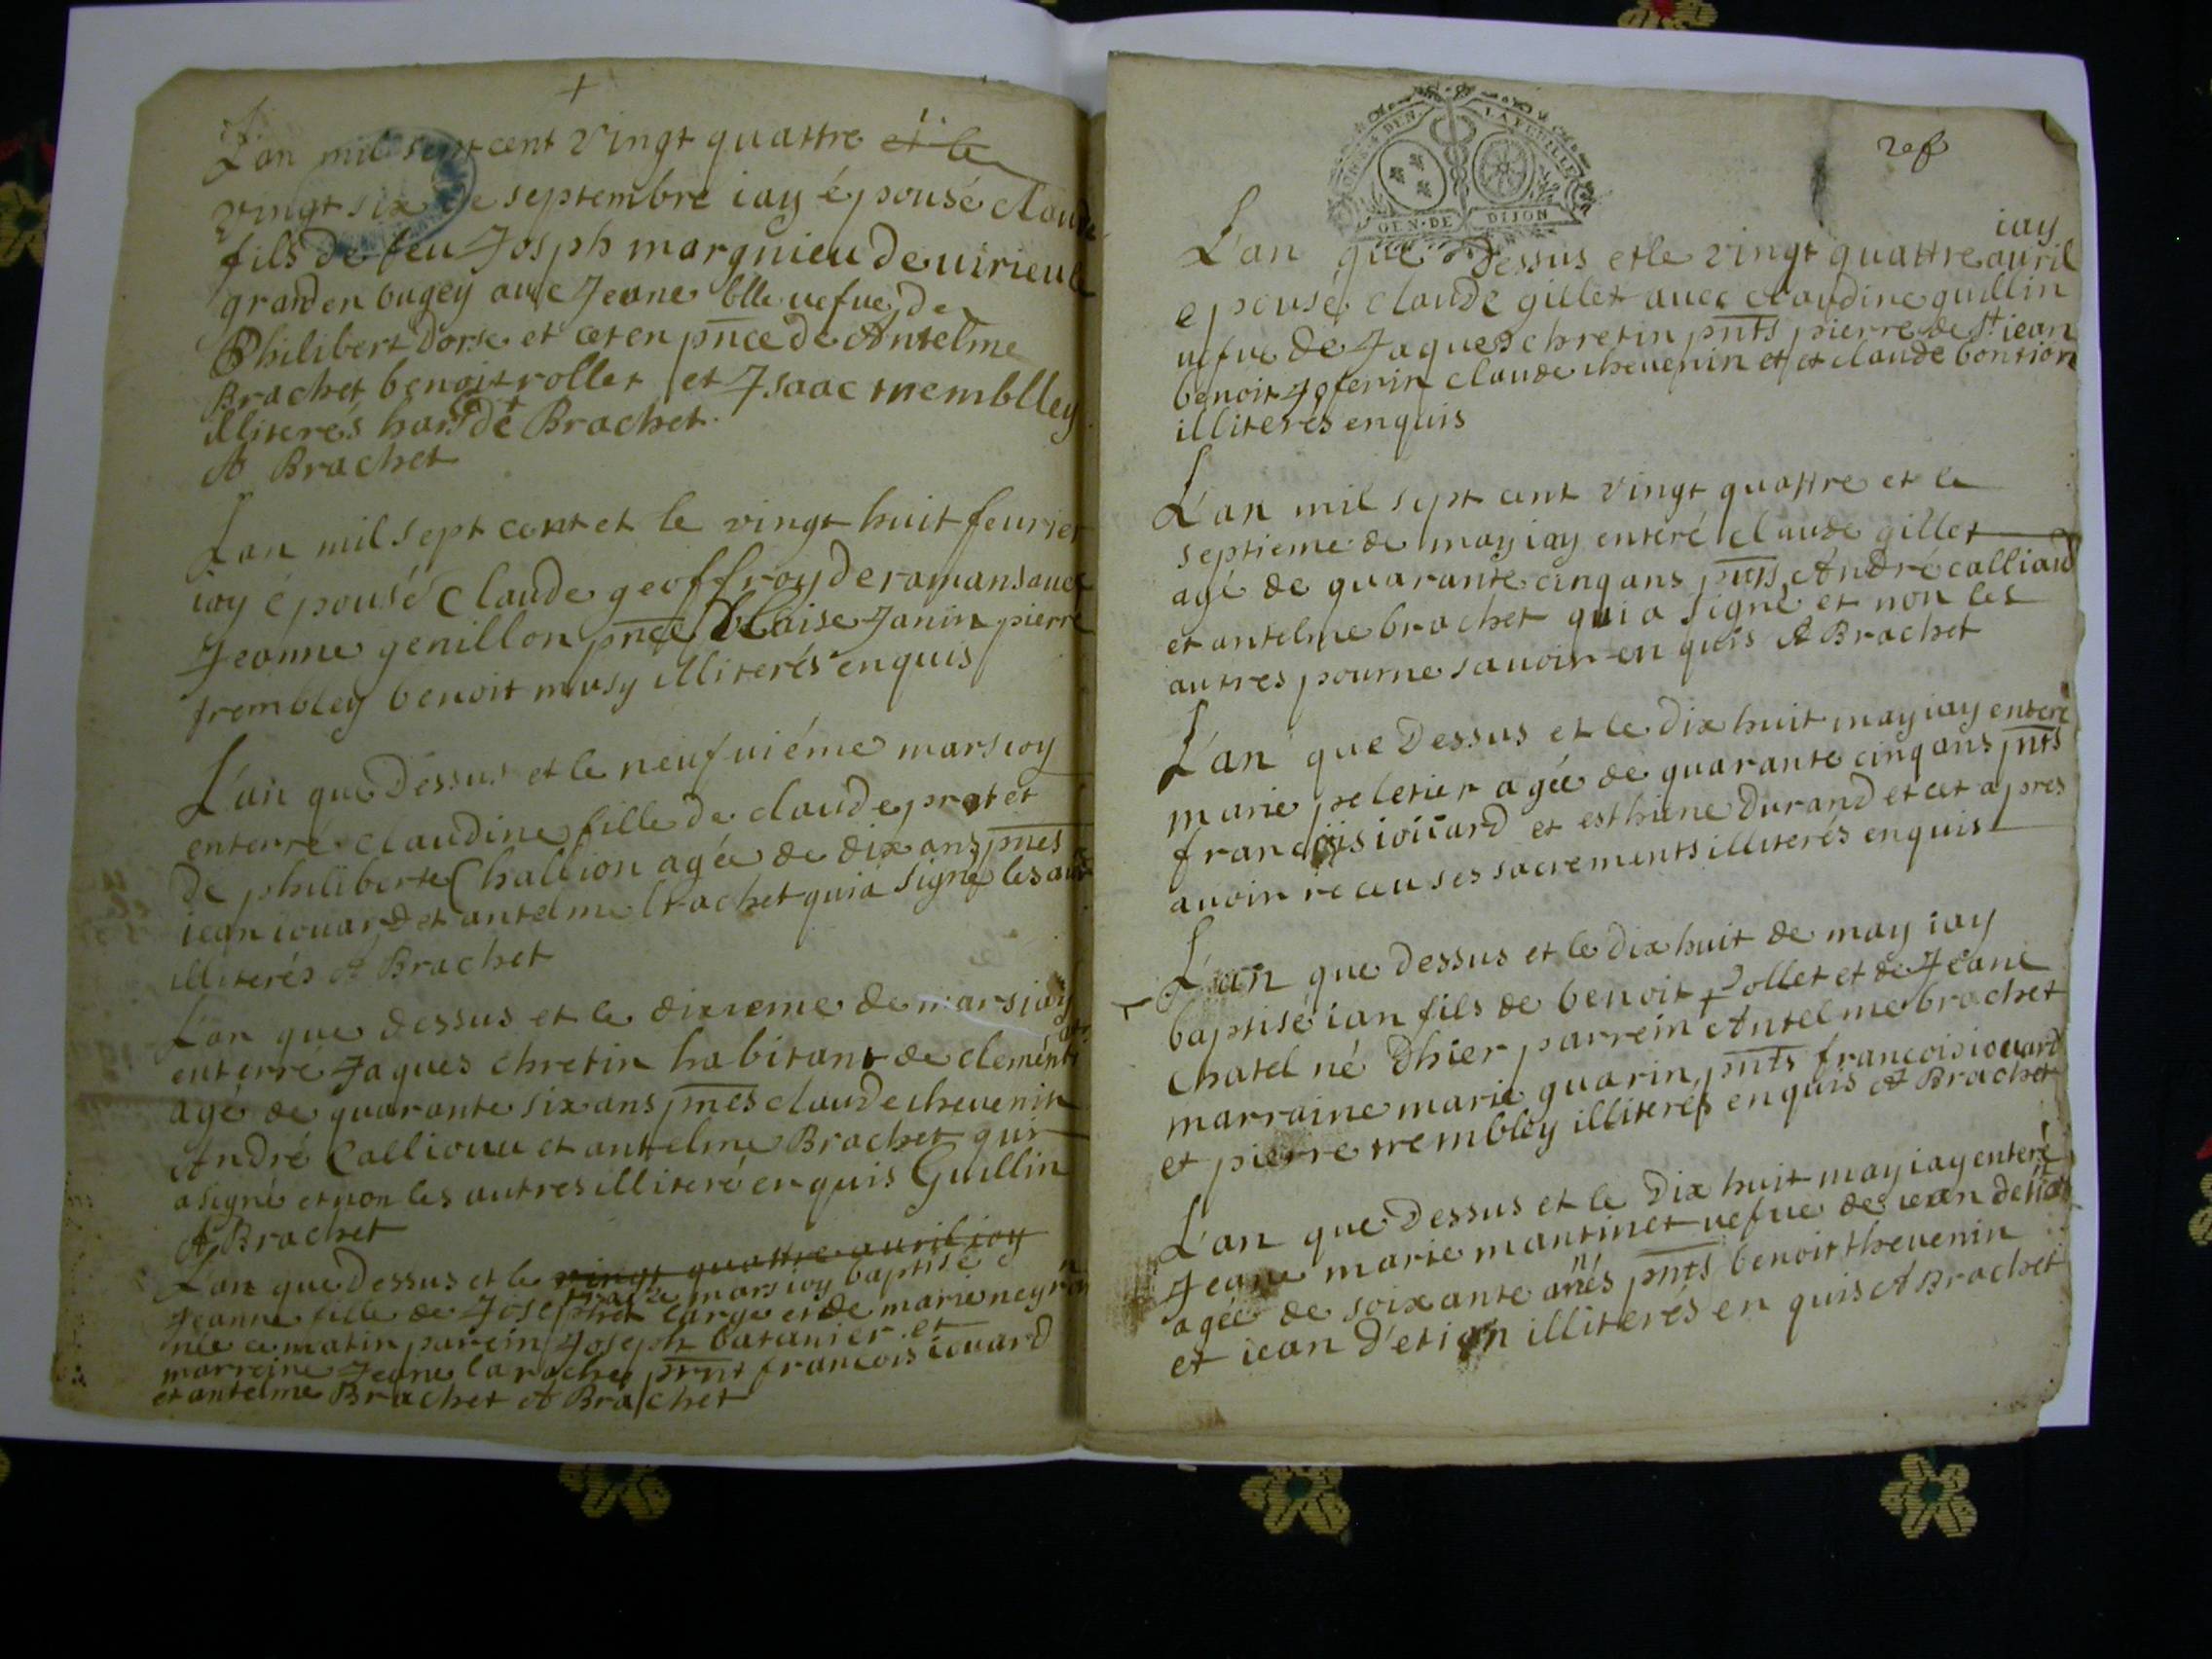 +
L'an mil sept cent vingt quattre et le
vingt six de septembre iay épousé Claude
fils de feu Josph margnieu de uirieu le
grand en bugey auec Jeane blle uefue de
Philibert Dorse et cet en pnce de Antelme
Brachet benoit rollet et Isaac tremblley
illiterés hors de Brachet.
A Brachet
L'an mil sept cent et le vingt huit feurier
iay épousé Claude geoffroy de romans auec
Jeanne genillon pnce blaise Janin pierre
trembley benoit musy illiterés enquis
L'an que dessus et le neufuiéme mars iay
enterré claudine fille de claude prost et
de philiberte Challion agée de dix ans pnes
iean iouard et antelme brachet qui a signé les aut
illiterés A Brachet
L'an que dessus et le dixieme de mars iay
enterré Jaques chretin habitant de clement
agé de quarante six ans pnes claude theuenin
André Calliouu et antelme Brachet qui
a signé et non les autres illiteré enquis Guillin
A Brachet
L'an que dessus et le vingt quattre auril iay
mars iay baptisé
Jeanne fille de Joseph large et de marie neyron
née ce matin parein Joseph batanier et
marreine Jeane laroche pnt francois iouard
et antelme Brachet A Brachet
GEN · DE DIJON
LA FEUILLE
iay
L'an que dessus et le vingt quattre auril
epousé claude gillet auec claudine guillin
uefue de Jaques chretin pnts pierre de st iean
benoit Joferin claude theuenin et et claude bontion
illiterés enquis
L'an mil sept cent vingt quattre et le
septieme de may iay enteré claude gillet
agé de quarante cinq ans pnts André calliaud
et antelme brachet qui a signé et non les
autres pour ne sauoir en quis A Brachet
L'an que dessus et le dix huit may iay enteré
marie peletier agée de quarante cinq ans pnts
francois ioüard et esthiene Durand et cet apres
auoir receu ses sacrements illiterés enquis
L'an que dessus et le dix huit de may iay
baptisé ian fils de benoit Rollet et de Jeane
chatel né d'hier parrein Antelme brachet
marraine marie guarin pnts francois iouard
et pierre trembley illiterés enquis A Brachet
L'an que dessus et le dix huit may iay enteré
Jeane marie mantinet uefue de iean
agée de soixante annés pnts benoit theuenin
et iean d'etion illiterés en quis A Brachet